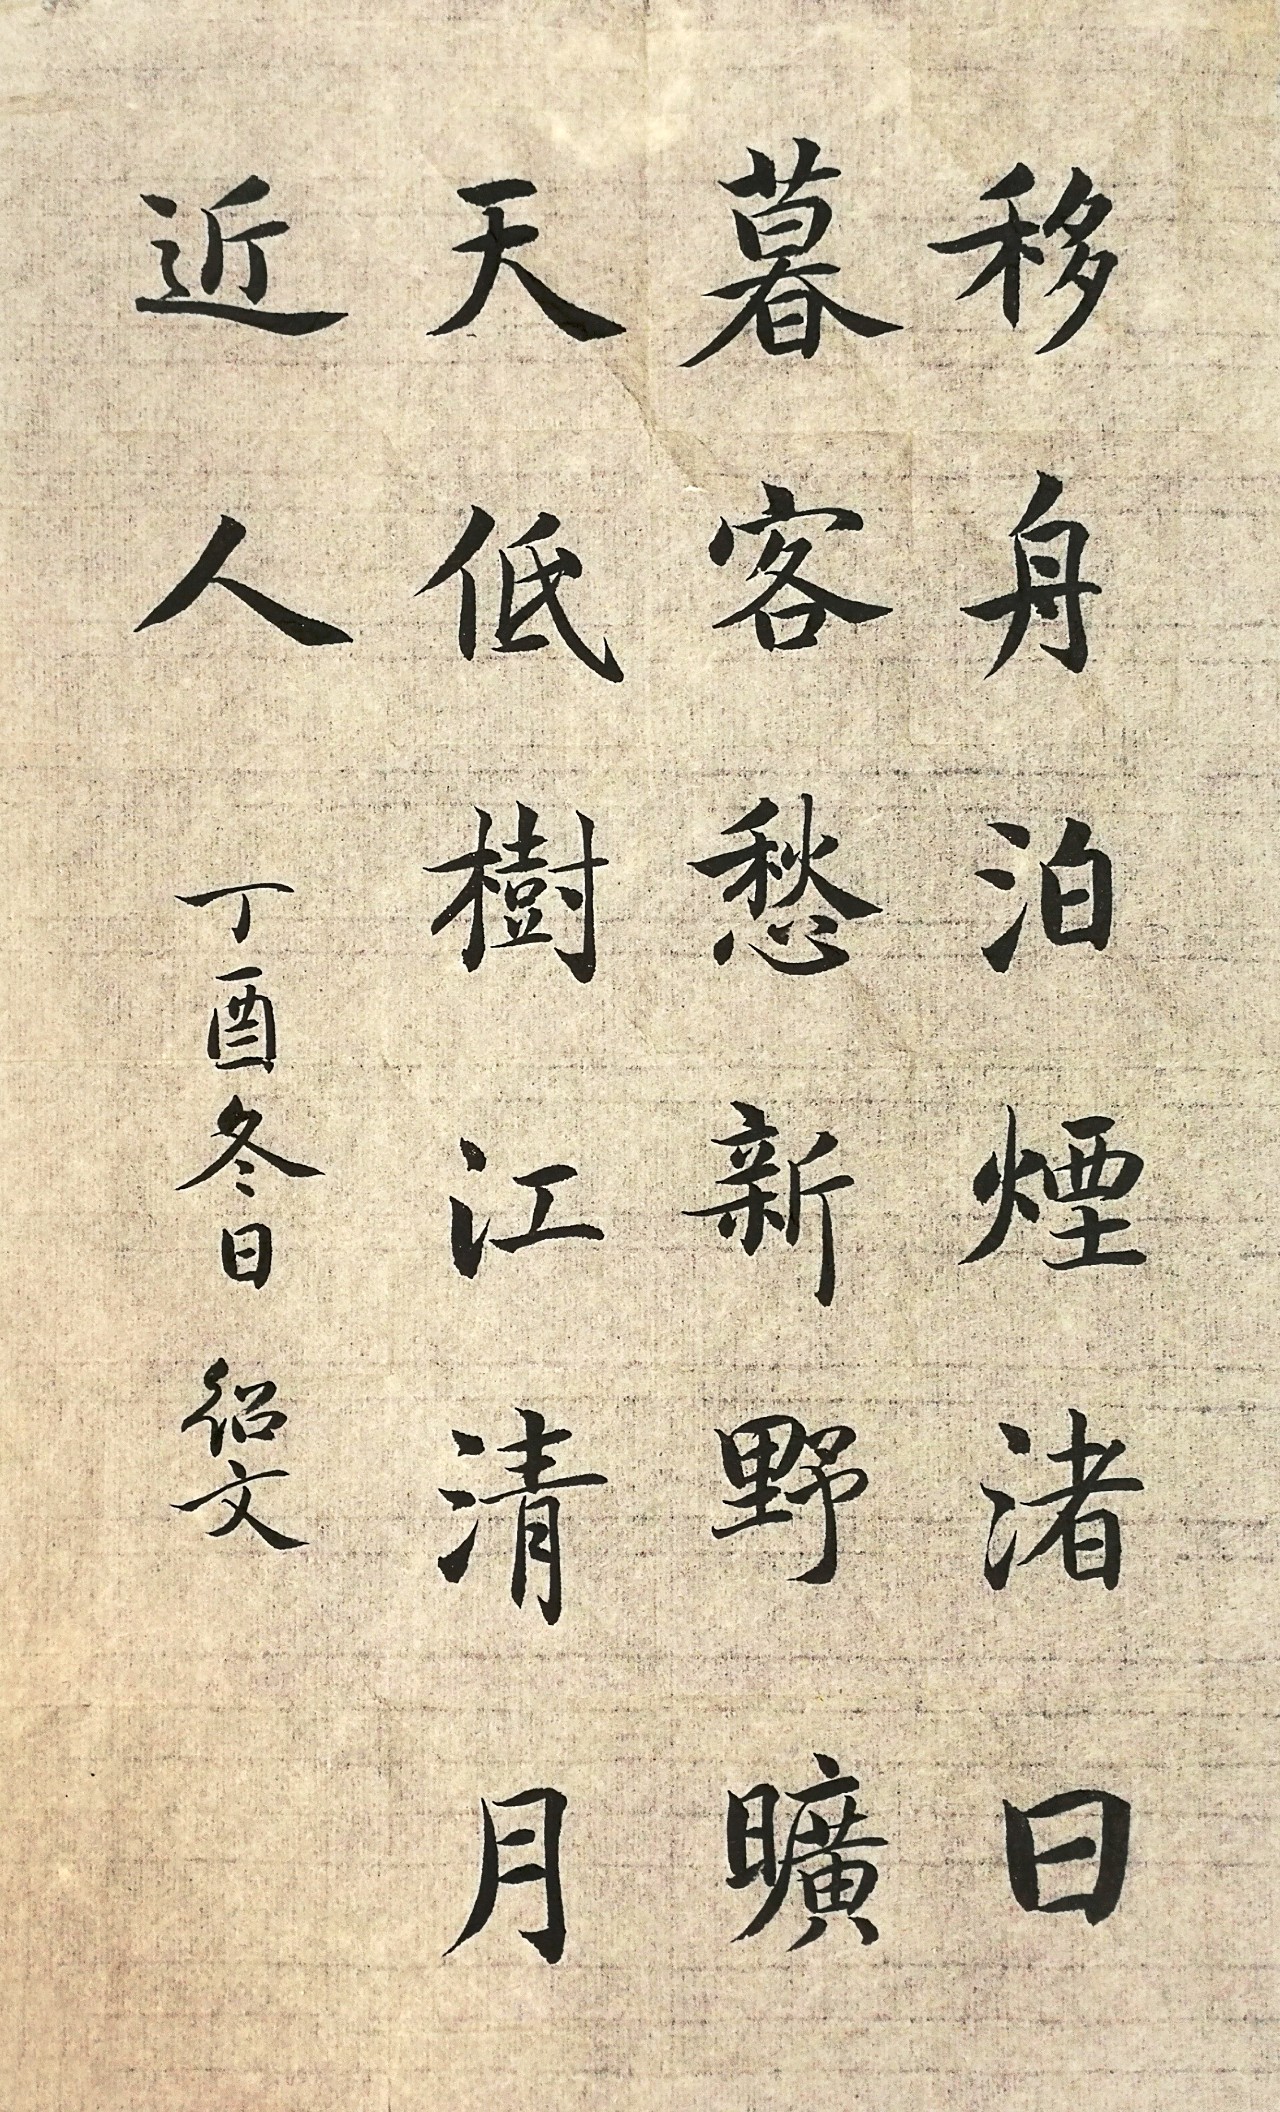 移舟泊煙渚日
暮客愁新野曠
天低樹江清月
近人
丁酉冬日 紹文